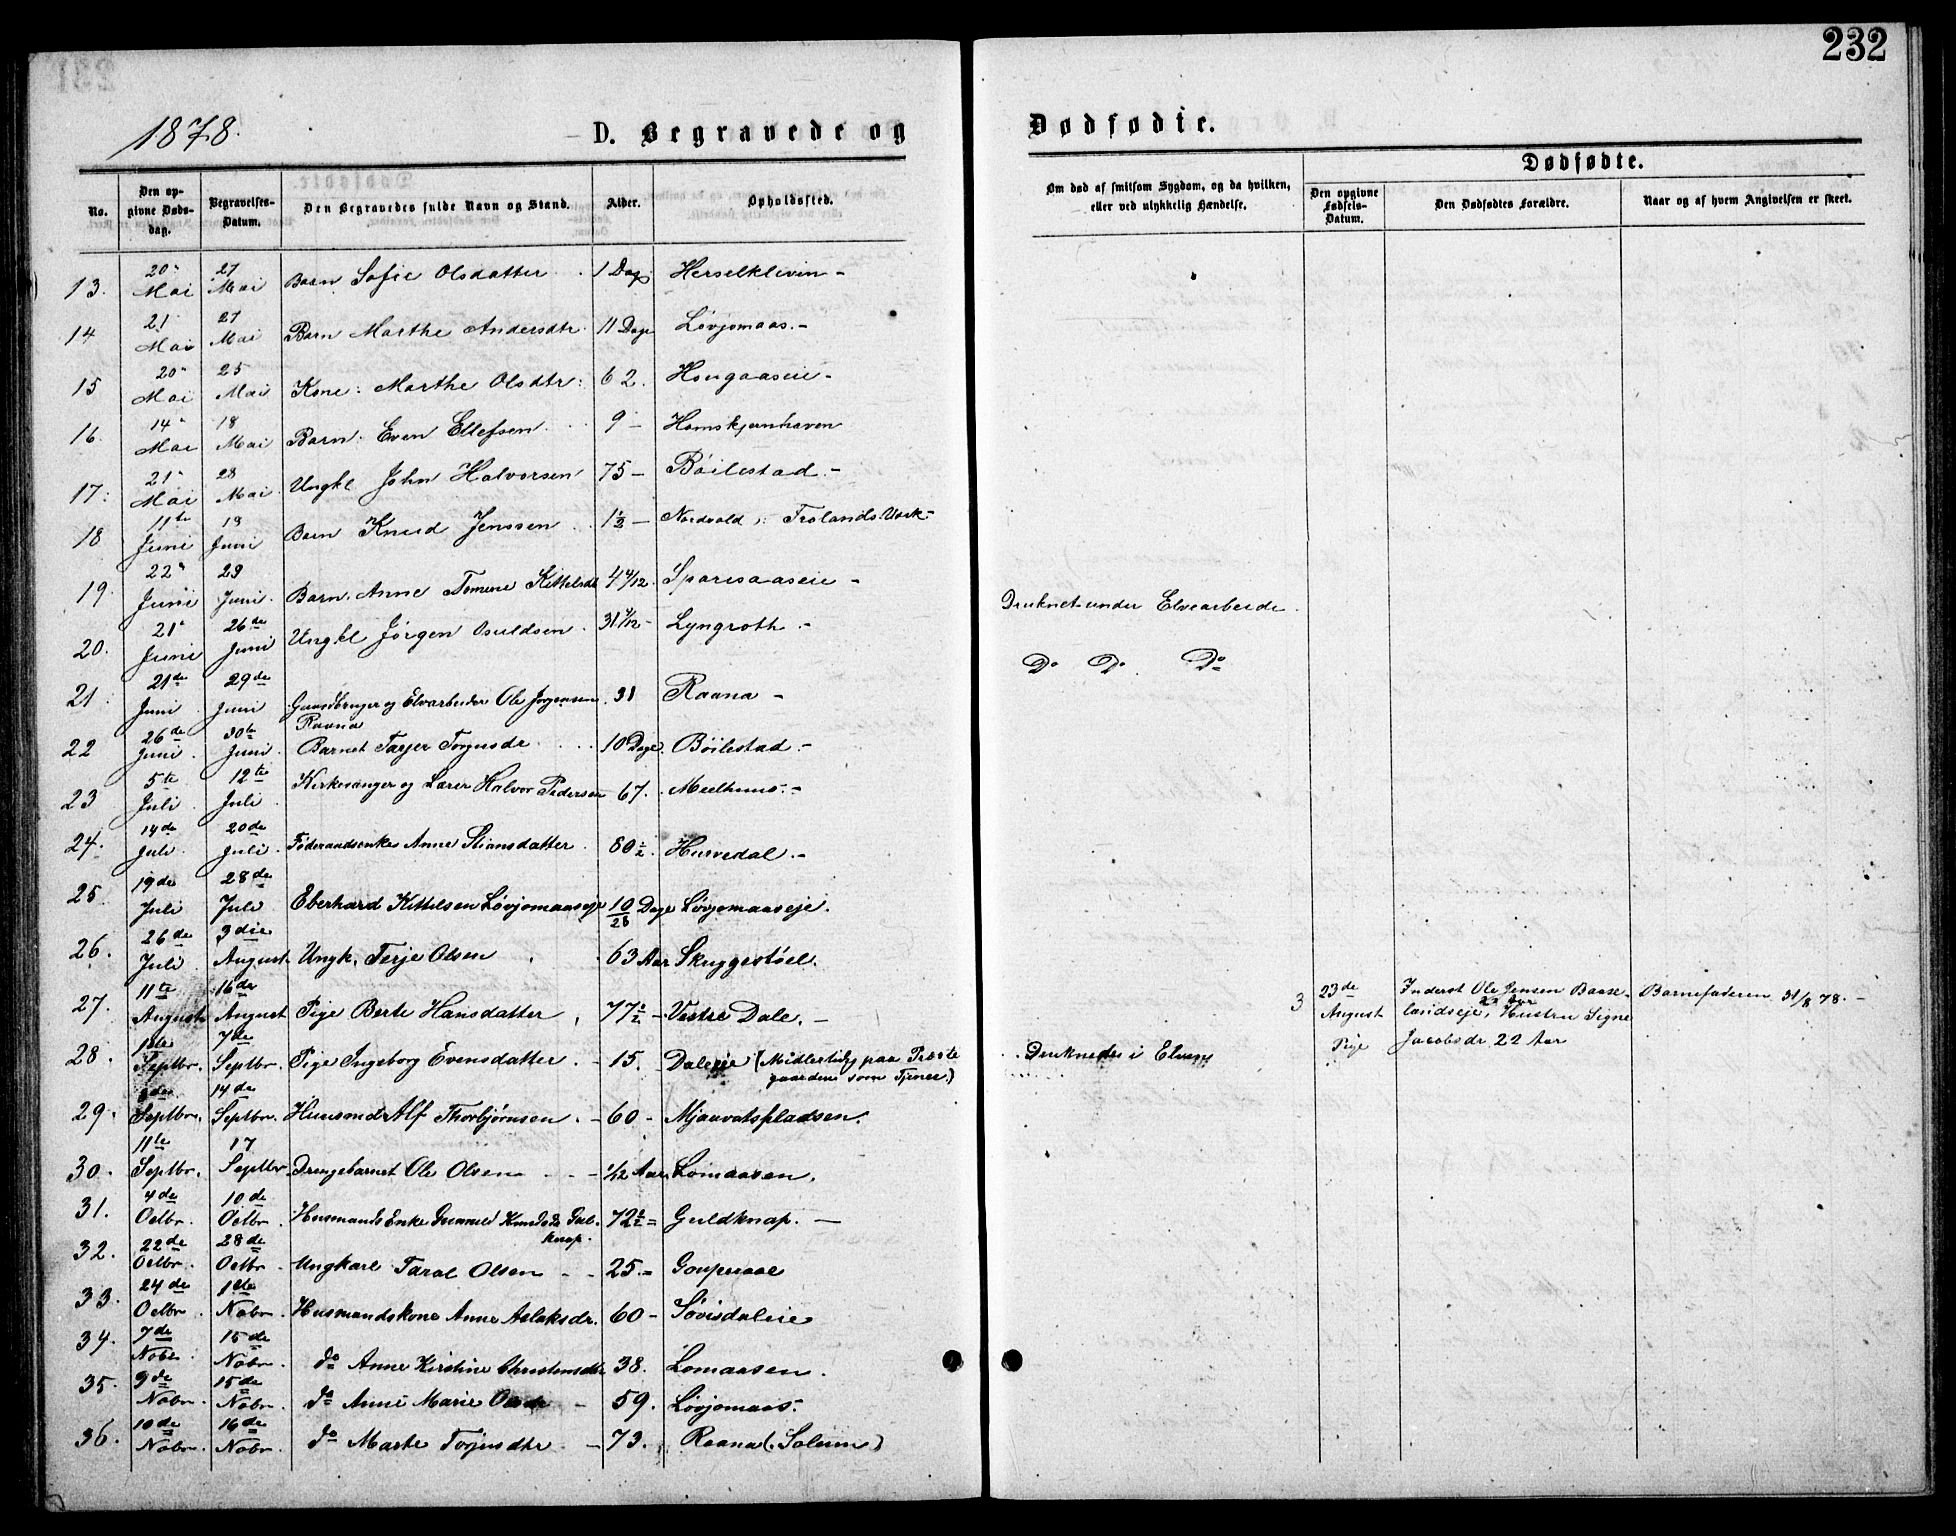 232
1878.
D. Begravede og Dødfødte.
Dødfødte.
No.
Den opgivne Dødsdag.
Begravelses-Datum.
Den Begravedes fulde Navn og Stand.
Alder.
Opholdssted.
Om død af smitsom Sygdom, og da hvilken, eller ved ulykkelig Hændelse.
Den opgivne Fødsels-Datum.
Den Dødfødtes Forældre.
Naar og af hvem Angivelsen er skeet.
13. 20 Mai 27 Mai Barn Sofie Olsdatter 1 Dag Herselklivin -
14 21 Mai 27 Mai Barn Marthe Andersdtr. 11 Dage Løvjomaas. -
15 20 Mai 25 Mai Kone: Marthe Olsdtr: 62. Hougaaseie -
16. 14 Mai 18 Mai Barn: Even Ellefsen 9 - Homskjernhaven
17: 21 Mai 28 Mai Ungkl John Halvorsen 75 - Bøilestad. -
18 11te Juni 19 Juni Barn Knud Jenssen 1½ - Nordvold : Frolands Værk -
19. 22 Juni 29 Juni Barn. Anne Tomine Kittelsdt 4 4/12. Sparsaaseie -
20. 21 Juni 26de Juni Ungkl Jørgen Osuldsen 31 4/12 - Lyngroth. - Druknet under Elvearbeide
21 21de Juni 29de Juni Gaardbruger og Elvarbeider Ole Jørgensen Raana 31 Raana - Do Do Do
22 26de Juni 30te Juni Barnet Tarjer Torjusdr 10 Dage. Bøilestad. -
23 5te Juli 12te Juli Kirkesanger og Lærer Halvor Pedersen 67. Mielhuus. -
24. 14de Juli 20de Juli Føderaadsenke Anne Stiansdatter 80½. Hurvedal. -
25 19de Juli 28de Juli Eberhard Kittelsen Løvjomaaseje 10/28 Dage Løvjomaaseje.
26. 26de Juli 3die August Ungk. Terje Olsen 63 Aar Skuggestøel.
27. 11te August 16de August Pige Berte Hansdatter 77½ - Vestre Dale. -
3 23de August Pige Inderst Ole Jensen Baaselandseje, 22 Aar Hustru Signe Jacobsdr 22 Aar Barnefaderen 31/8 78. -
28. 1ste Septbr. 7de Septbr. Pige Ingeborg Evensdatter 15. Daleeie (Midlertidig paa Prestegaarden som Tjener.) Druknede i Elven
29. Septbr. 14de Septbr. Huusmd Alf Thorbjørnsen 60 - Mjaavatspladsen.
30. 11te Septbr. 17 Septbr. Drengebarnet Ole Olsen 1/12 Aar Lomaasen.
31. 4de Octbr. 10de Octbr. Husmands Enke Gunnild Knudsd Guldknap. 72½ = Guldknap. -
32. 22de Octbr. 28de Octbr. Ungkarl Taral Olsen 25. =
33. 24de Octbr. 1ste Nobr. Husmandskone Anne Aslaksdr. 60 - Søvisdaleie
34. 7de Nobr. 15de Nobr. do Anne Kirstine Christensdtr 38. Lomaasen.
35. 9de Nobr. 15de Nobr. do Anne Marie Olsdr 59. Løvjomaas.
36. 10de Nobr. 16de Nobr. do Marte Torjusdtr 73. Raana (Solum)